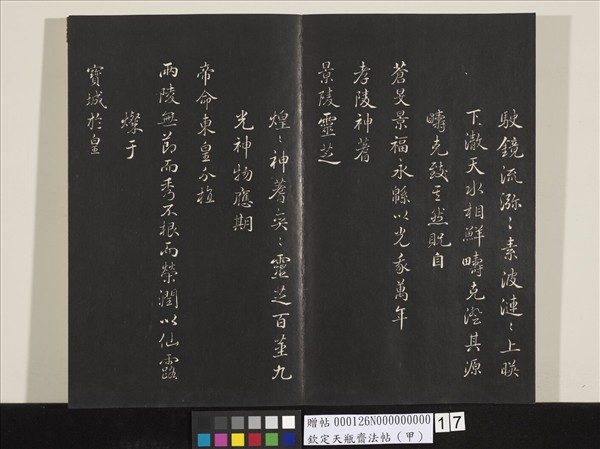 駛鏡流瀰〻素波漣〻上暎
下澈天水相鮮疇克澄其源
疇克致然貺自
蒼旻景福永緜以光我萬年
孝陵神蓍
景陵靈芝
煌〻神蓍奕〻靈芝百莖九
光神物應期
帝命東皇分植
兩陵無節而秀不根而榮潤以仙露
燦于
寶城於皇
贈帖 000126N000000000
欽定天瓶齋法帖(甲)
17